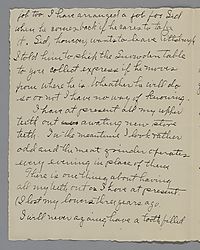 job too. I have arranged a job for Sid
when he comes back if he cares to take
it. Sid, however, wants to leave Pittsburgh
I told him to ship the Snowdon table
to you collect express if he moves
from where he is. Whether he will do
so or not I have no way of knowing.
I have at present all my upper
teeth out awaiting new store
teeth. In the meantime I look rather
odd and the meat grinder operates
every evening in place of them
There is one thing about having
all my teeth out as I have at present
(I lost my lowers three years ago.
I will never again have a tooth filled